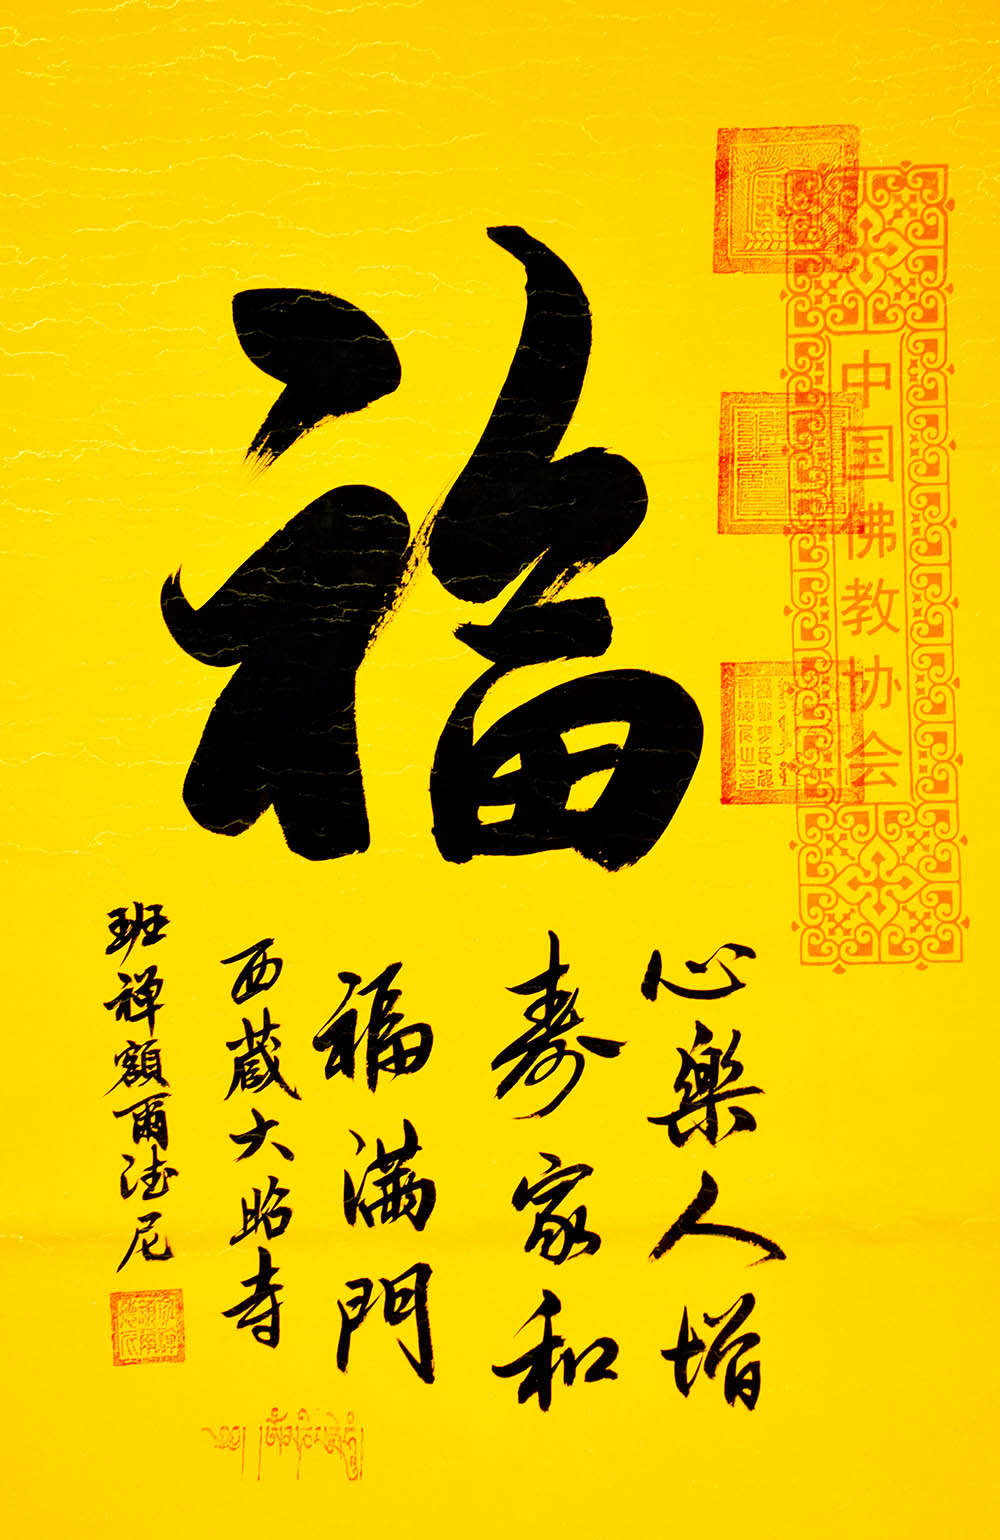 福
中国佛教协会
心樂人增
寿家和
福满門
西蔵大昭寺
班禅額爾德尼